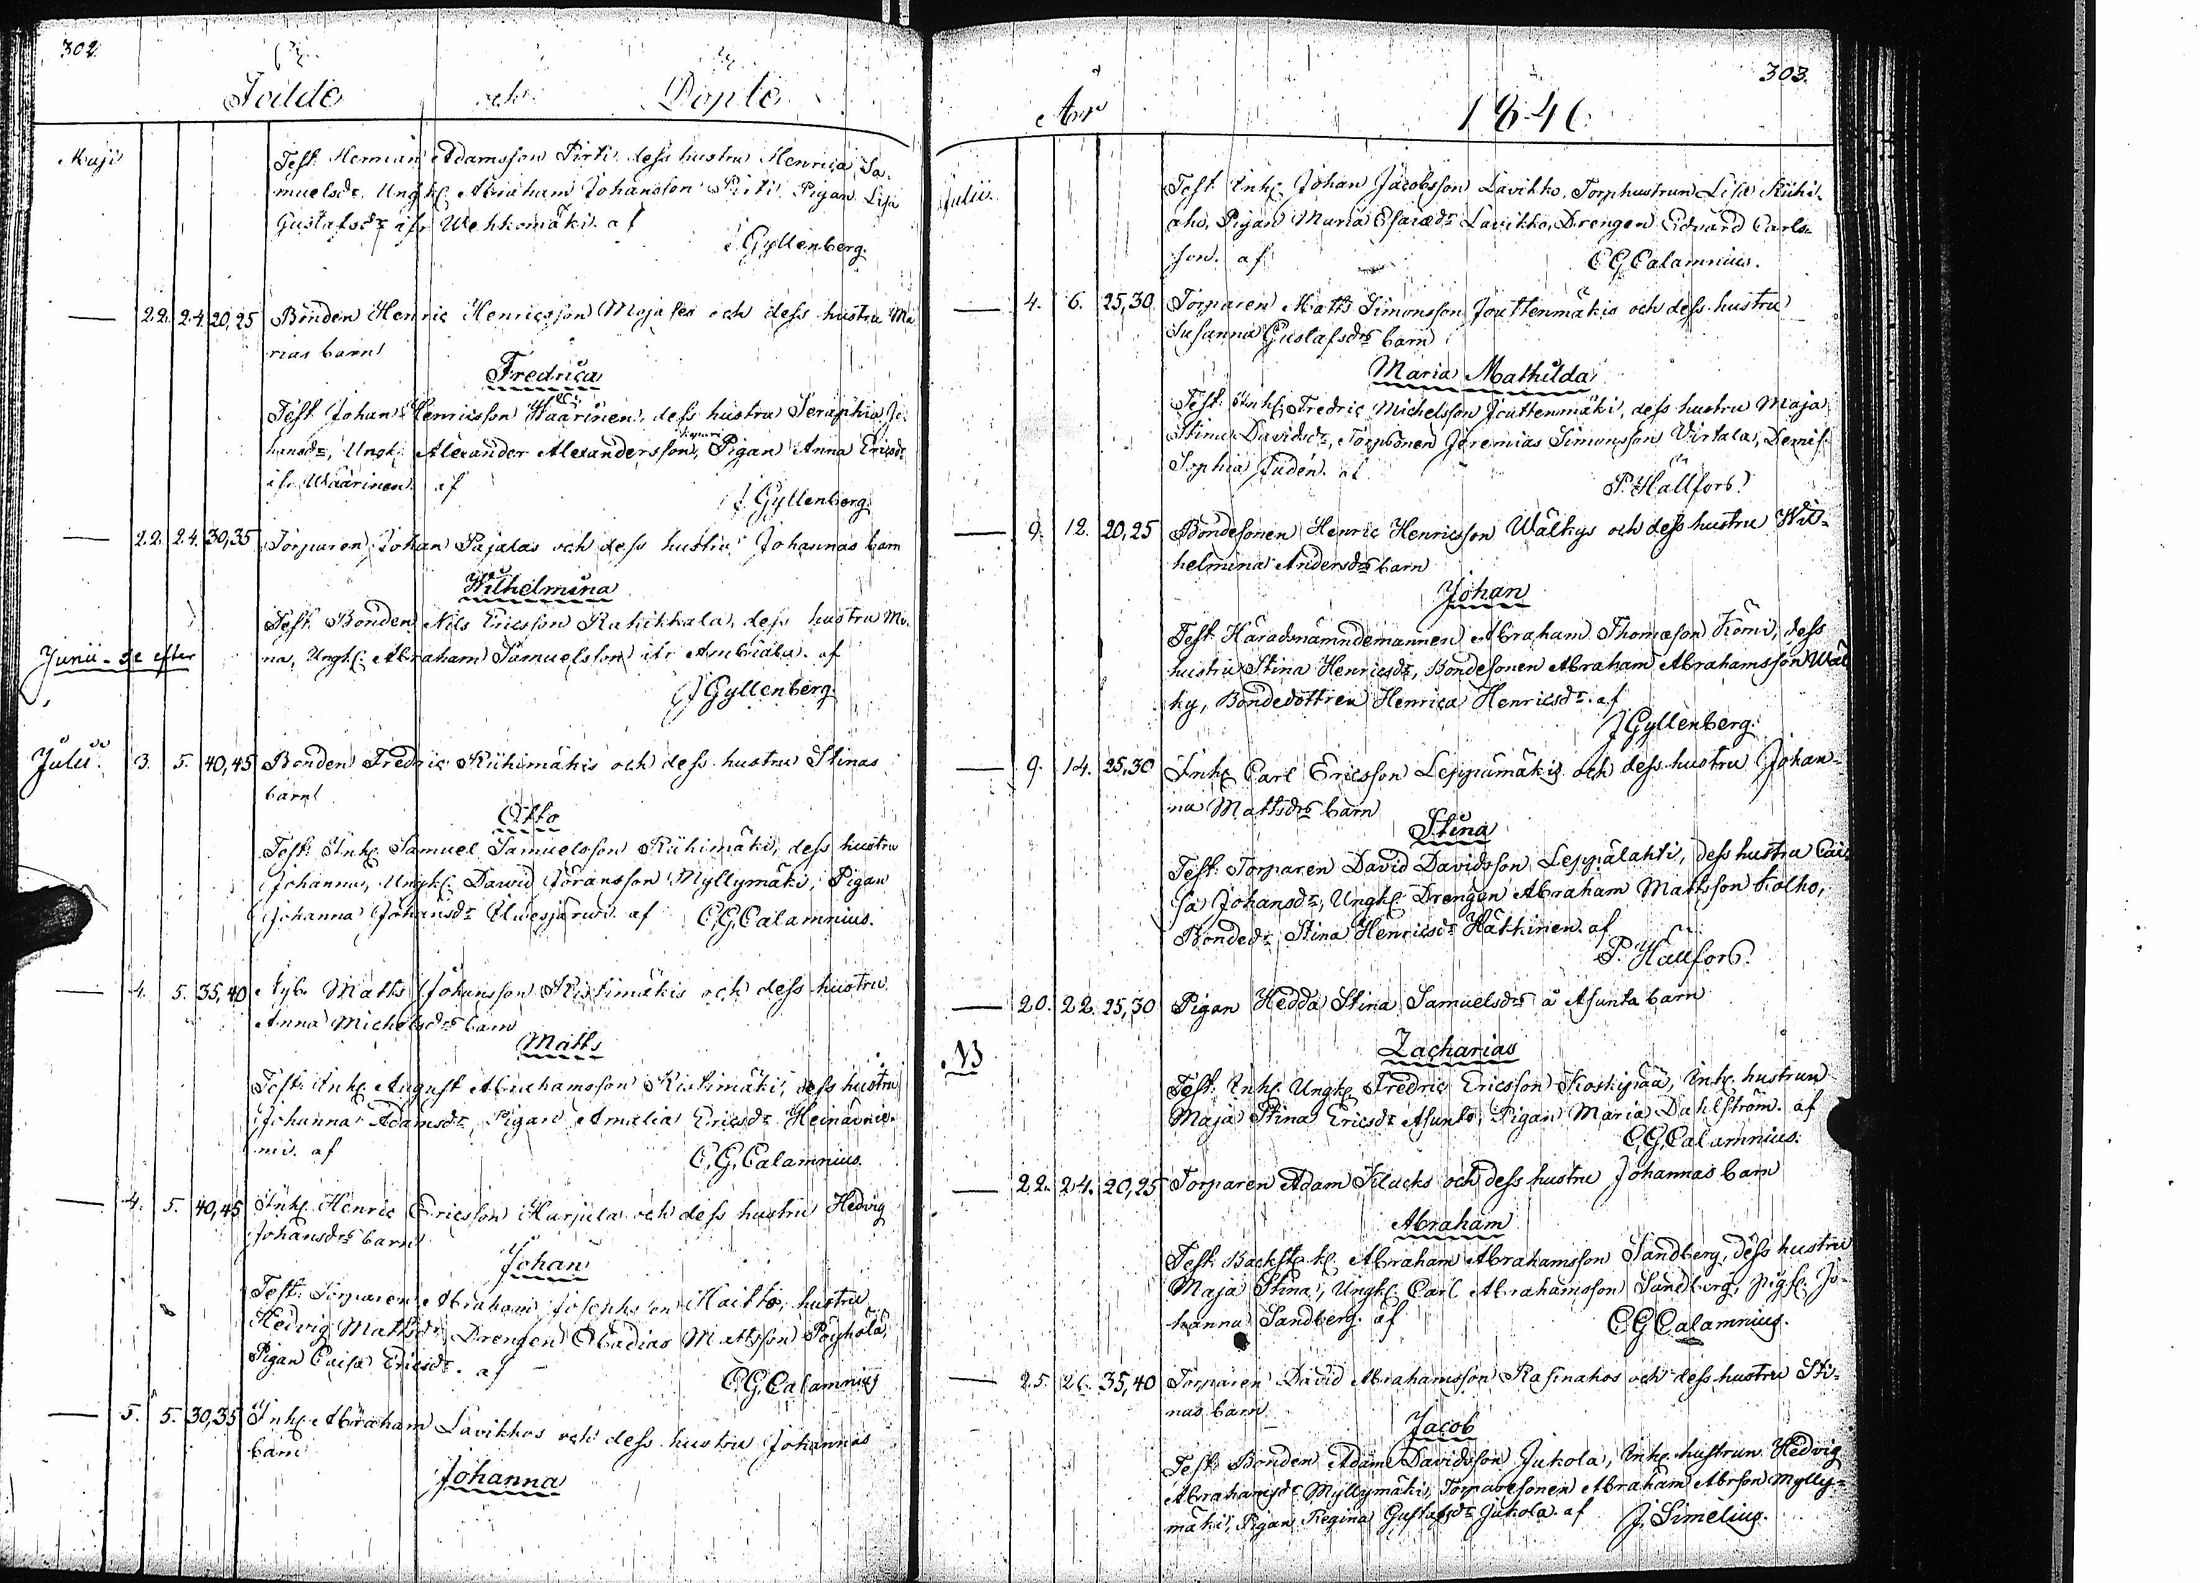 302.
Födde och Döpte
Maji
Test. Herman Adamsson Pirti dess hustru Henrica Sa-
muelsdr. Ungk. Abraham Johansson Pirti, Pigan Lisa
Gustafsdr ifr. Wehkomäki. af
J Gyllenberg.
— 22. 24. 20,25 Bonden Henric Henricsson Majasex och dess hustru Ma
rias barn
Fredrica
Test. Johan Henricsson Waarinen, dess hustru Seraphia Jo-
hansdr, Ungk. Alexander Alexandersson, Pigan Anna Ericsdr
ifr. Waarinen. af
J Gyllenberg.
— 22. 24. 30,35 Torparen Johan Pajalas och dess hustru Johannas barn
Wilhelmina
Test. Bonden Nils Ericsson Kahikkala, dess hustru Ma-
na, Ungk. Abraham Samuelsson ifr af
J Gyllenberg.
Junii - se efter
Julii. 3. 5. 40,45 Bonden Fredric Riihimäkis och dess hustru Stinas
barn
Otto
Test. Inh. Samuel Samuelsson Riihimäki, dess hustru
Johanna, Ungk. David Göransson Myllymäki, Pigan
Johanna Johansdr Uuesjärwi. af C.G.Calamnius.
— 4. 5. 35,40 Nyb. Matts Johansson Ristimäkis och dess hustru
Anna Michelsdrs barn
Matts
Test. Inh. August Abrahamsson Ristimäki, dess hustru
Johanna Adamsdr, Pigan Amalia Ericsdr Heinänie-
mi. af
C.G.Calamnius.
— 4. 5. 40,45 Inh. Henric Ericsson Harjula och dess hustru Hedvig
Johansdrs barn
Johan
Test. Torparen Abraham Josephsson Haitto, hustru
Hedvig Mattsdr, Drengen Obadias Mattsson Pöyhölä,
Pigan Caisa Ericsdr. af
C.G.Calamnius
— 5. 5. 30,35 Inh. Abraham Lavikkos och dess hustru Johannas
barn
Johanna
303.
År 1846.
Julii.
Test. Inh. Johan Jacobsson Lavikko, Torphustrun Lisa Kiiki-
aho, Pigan Maria Esaiædr Lavikko, Drengen Edvard Carls-
son. af
C G Calamnius.
— 4. 6. 25,30 Torparen Matts Simonsson Jouttenmäkis och dess hustru
Susanna Gustafsdrs barn
Maria Mathilda
Test. Inh. Fredric Michelsson Jouttenmäki, dess hustru Maja
Stina Davidsdr, Torpsonen Jeremias Simonsson Virtala, Demis.
Sophia Judén. af
P. Hällfors.
— 9. 12. 20,25 Bondesonen Henric Henricsson Wälkys och dess hustru Wil-
helmina Andersdrs barn
Johan
Test. Häradsnämndemannen Abraham Thomæson Komi, dess
hustru Stina Henricsdr, Bondesonen Abraham Abrahamsson Wäl
ky, Bondedottren Henrica Henricsdr. af
J Gyllenberg.
— 9. 14. 25,30 Inh. Carl Ericsson Leppämäkis och dess hustru Johan-
na Mattsdrs barn
Stina
Test. Torparen David Davidsson Leppälahti, dess hustru Cai-
sa Johansdr, Ungk. Drengen Abraham Mattsson Kolho,
Bondedr. Stina Henricsdr Hatkinen. af
P. Hällfors.
— 20. 22. 25,30 Pigan Hedda Stina Samuelsdrs å Asunta barn
NB
Zacharias
Test. Inh. Ungk. Fredric Ericsson Koskipää, Inh. hustrun
Maja Stina Ericsdr Asunta, Pigan Maria Dahlström. af
C.G.Calamnius.
— 22. 24. 20,25 Torparen Adam Klacks och dess hustru Johannas barn
Abraham
Test. Backst. k. Abraham Abrahamsson Sandberg, dess hustru
Maja Stina, Ungk. Carl Abrahamsson Sandberg, pigk. Jo-
hanna Sandberg. af
C G Calamnius.
— 25. 26. 35,40 Torparen David Abrahamsson Kasinahos och dess hustru Sti-
nas barn
Jacob
Test. Bonden Adam Davidsson Jukola, Inh. hustrun Hedvig
Abrahamsdr Myllymäki, Torparesonen Abraham Abrson Mylly-
mäki, Pigan Regina Gustafsdr Jukola. af J. Simelius.